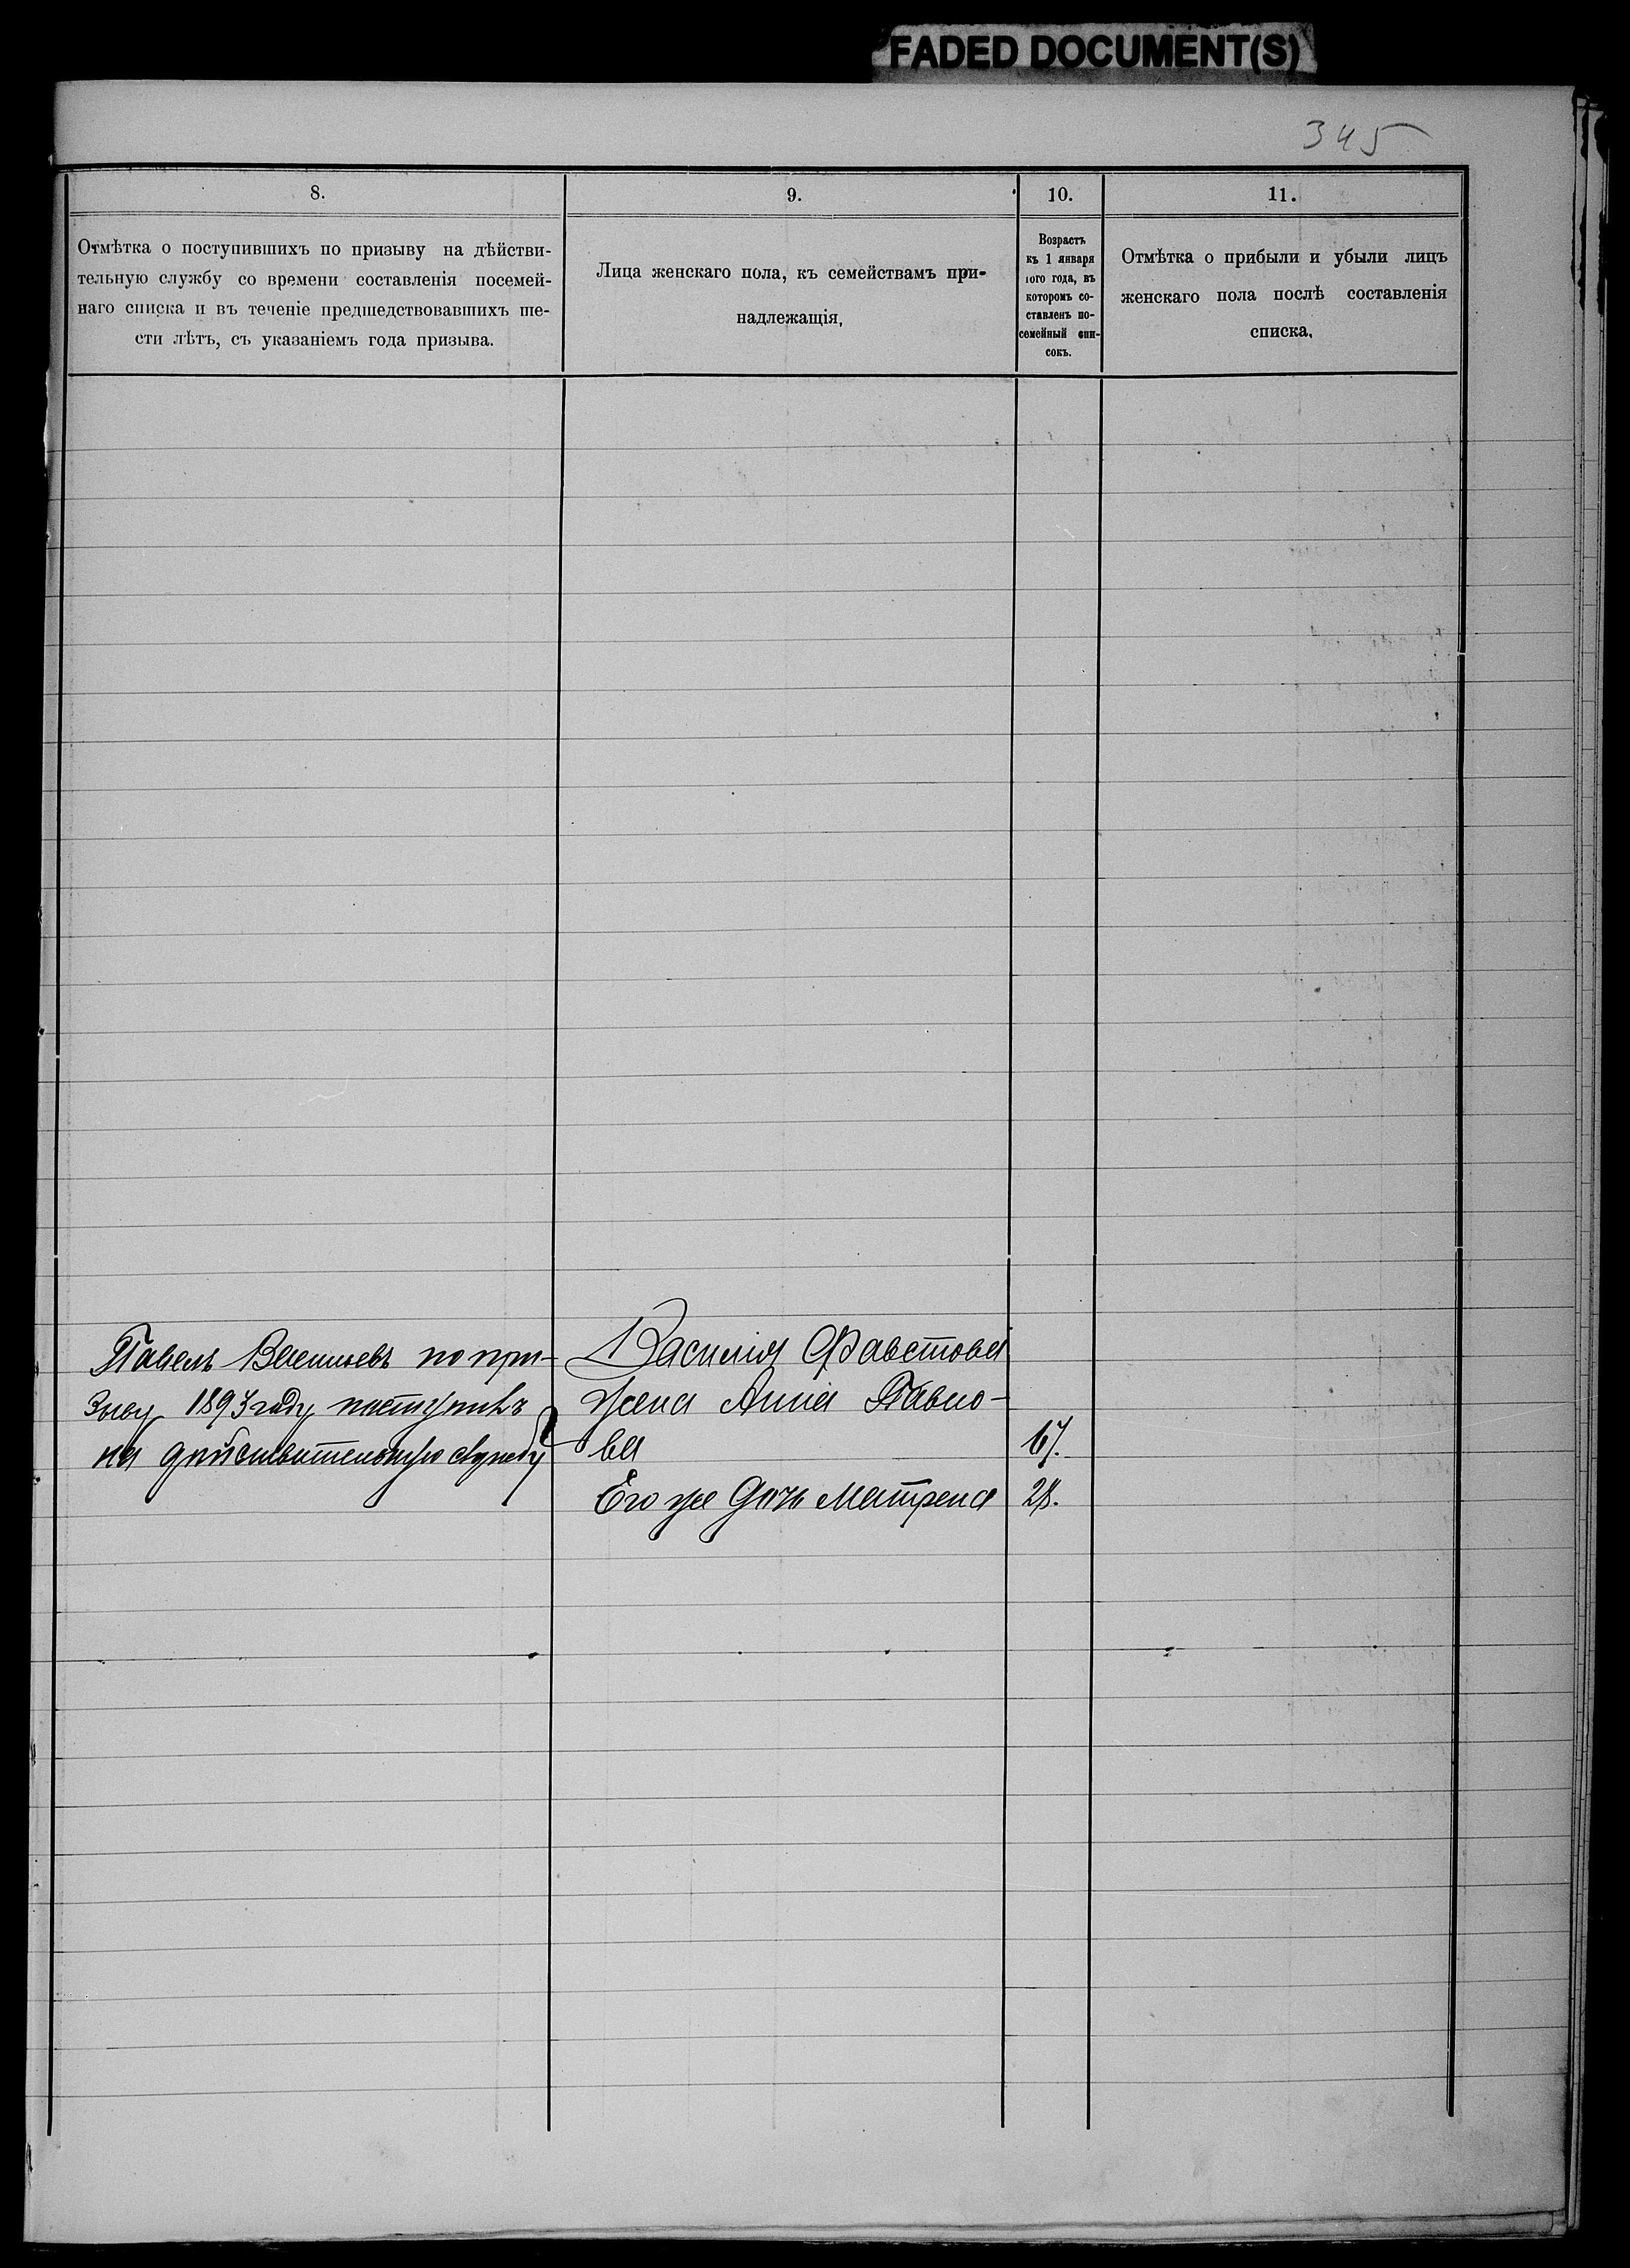 FADED DOCUMENT(S)
345
8.
Отмѣтка о поступившихъ по призыву на дѣйстви-
тельную службу со времени составленія посемей-
наго списка и въ теченіе предшедствовавшихъ ше-
сти лѣтъ, съ указаніемъ года призыва.
9.
Лица женскаго пола, къ семействамъ при-
надлежащія,
10.
Возрастъ
къ 1 января
того года, въ
которомъ со-
ставленъ по-
семейный спи-
сокъ.
11.
Отмѣтка о прибыли и убыли лицъ
женскаго пола послѣ составленія
списка.
Павелъ Васильевъ по при-
зыву 1893 году поступилъ
на дѣйствительную службу
Василія Фавстова
жена Анна Павло-
ва 67.
Его же дочь Матрена 28.